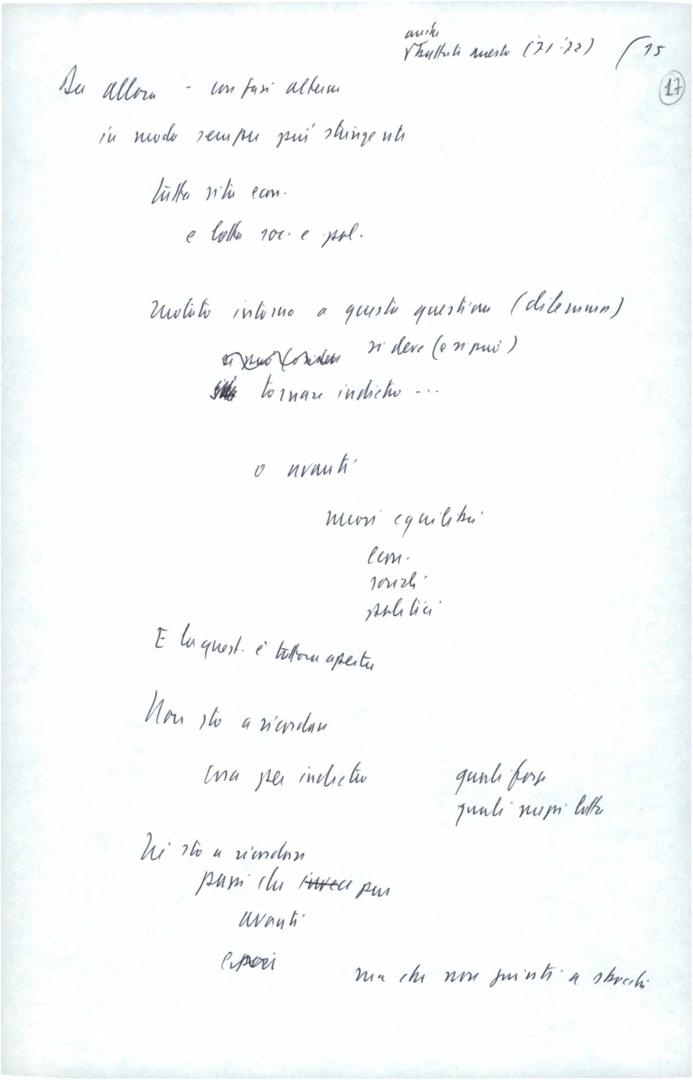 anche
(71-72) 15
17
Da allora - con fasi alterne
in modo sempre più stringente
tutta vita econ.
e lotta soc. e pol.
ruotato intorno a questa questione (dilemma)
si deve (e si può)
tornare indietro ...
o avanti
nuovi equilibri
econ.
sociali
politici
E la quest. è tuttora aperta
Non sto a ricordare
cosa per indietro
quali forze
quali mezzi lotta
Né sto a ricordare
passi che invece pur
avanti
ma che non giunti a sbocchi